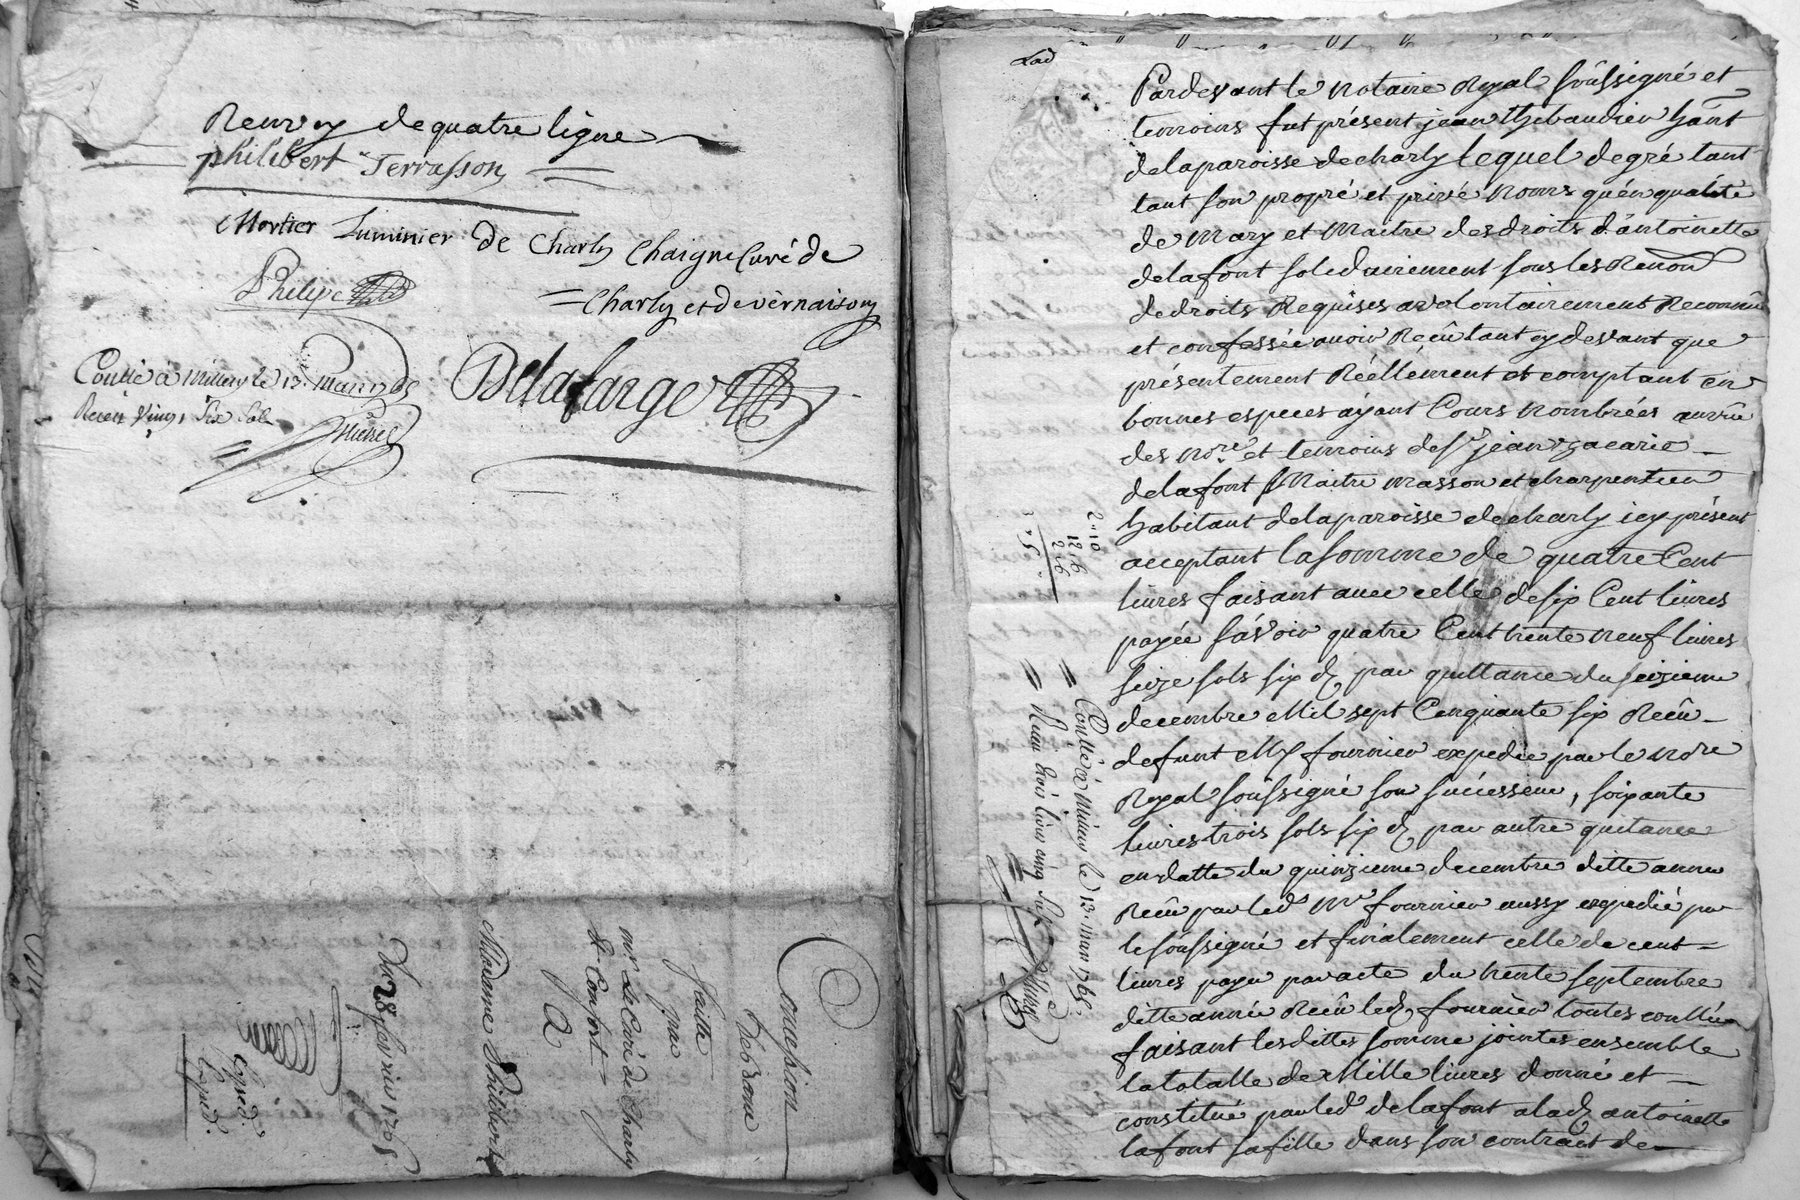 Renvoy de quatre ligne
philibert Terrasson
Mortier Luminier de Charly Chaigne Curé de
Philipe
Charly et de vernaison
Conllé à Millery le 13. Mars 1765
Receu vingt six sols
Michel
Delafarge
Concession
De banc
faitte
par
mr. Le Curé de Charly
&
A
Madame Philibert
Du 28 fevrier 1765
Exped.
Exped.
Lad
Pardevant le Notaire Royal soussigné et
temoins fut présent jean thibaudier hânt
de la paroisse de charly lequel de gré tant
tant son propré et privé Noms qu'en qualité
de Mary et Maitre des droits d'antoinette
delafont solidairement sous les Renon
de droits Requises a volontairement Reconnû
et confessée avoir Reçû tant cy devant que
présentement Réellement et comptant en
bonnes especes ayant Cours Nombrées au vû
des Nore et temoins de sr jean zacarie
delafont Maitre masson et charpentier
habitant de la paroisse de charly icy présent
acceptant la somme de quatre Cent
livres faisant avec celle de six Cent livres
payée sávoir quatre Cent trente neuf livres
seize sols six d. par quittance du seizieme
decembre Mil sept Cinquante six Reçû
defunt Me fournier expediée par le Nore
Royal soussigné son successeur, soixante
livres trois sols six d. par autre quitance
en datte du quinzieme decembre ditte année
Reçû par led Me fournier aussy expedié par
le soussigné et finalement celle de cent
livres payée par acte du trente septembre
ditte année Reçû led. fournier toutes conllées
faisant lesdittes somme jointes ensemble
la totalle de Mille livres donné et
constitué par led delafont a lad. antoinette
lafont sa fille dans son contract de
2-10
12.6
2.6
3. 5.
Conllé à Millery le 13. mars 1765.
Receu trois livres cinq sols
Michel